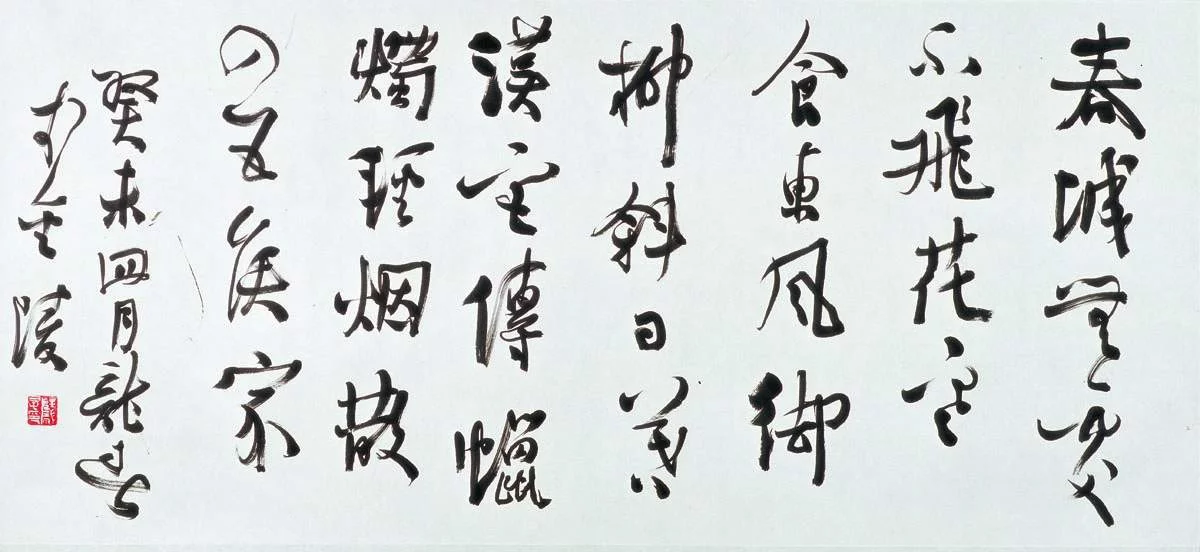 春城無處
不飛花寒
食東風御
柳斜日暮
漢宮傳蠟
燭輕烟散
入五侯家
癸未四月龍
於金陵